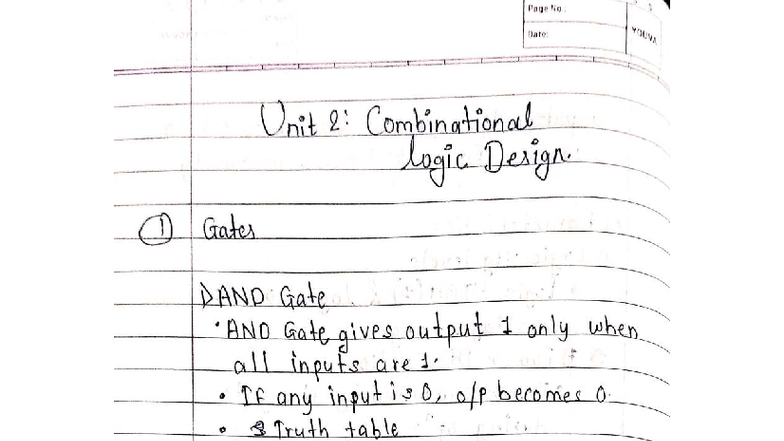 Page No.
Date:
YOUVA
Unit 2: Combinational
logic Design.
① Gates
1) AND Gate
• AND Gate gives output 1 only when
all inputs are 1.
• If any input is 0, o/p becomes 0
• Truth table